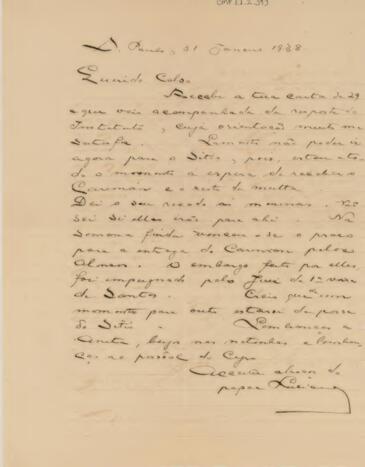 S. Paulo, 31 Janeiro 1938
Querido Celso
Recebi a tua carta de 29
que veio acompanhada da resposta do
Instituto, cuja orientação muito me
Lamento não poder ir
agora para o Sitio, pois, estou a to
do o momento a espera de receber o
e o resto da multa
Dei o seu recado as meninas. Não
sei si ellas irão para ahi. Na
semana finda venceu-se o prazo
para a entrega do pelos
O embargo feito por elles,
foi impugnado pelo Juiz da 1ª vara
de Santos. Creio que de um
momento para outro estarei de posse
do Sitio. Lembranças a
beijos nas netinhas e lembran
ças ao pessoal de
Aceite abraço do
papae Luciano